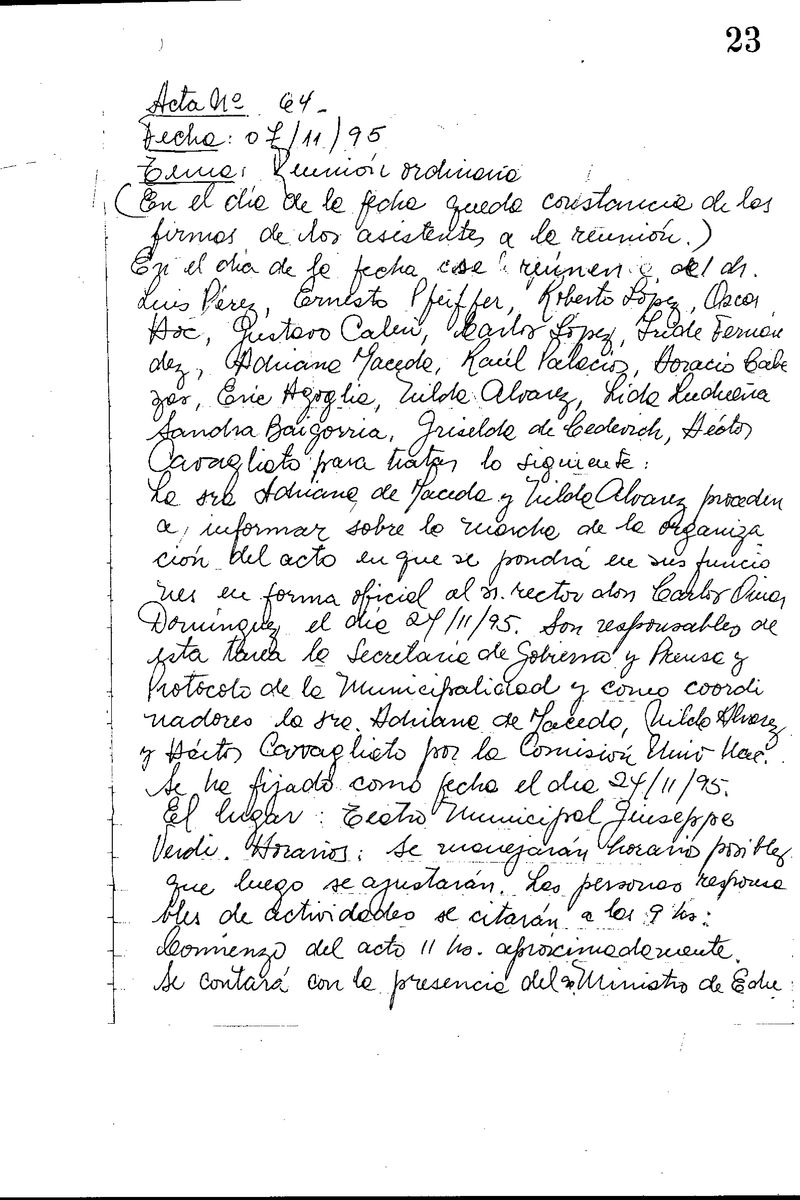 23
Acta Nº 64-
Fecha: 07/11/95
Tema: Reunión ordinaria
(En el día de la fecha queda constancia de las
firmas de los asistentes a la reunión.)
En el día de la fecha se reúnen el dr.
Luis Pérez, Ernesto Pfeiffer, Roberto López, Oscar
Hoc, Gustavo Caleri, Carlos López, Fernán
dez, Adriana Macedo, Raúl Palacios, Horacio Cabe
zas, Eric Agoglia, Nilda Alvarez, Lida Ludueña
Sandra Baigorria, Griselda de Cederich, Héctor
Cavagliato para tratar lo siguiente:
La sra Adriana de Macedo y Nilda Alvarez proceden
a informar sobre la marcha de la organiza
ción del acto en que se pondrá en sus funcio
nes en forma oficial al sr. rector don Carlos Omar
Domínguez el día 24/11/95. Son responsables de
esta tarea la Secretaría de Gobierno y Prensa y
Protocolo de la Municipalidad y como coordi
nadores la sra. Adriana de Macedo, Nilda Alvarez
y Héctor Cavagliato por la Comisión Univ Nac.
Se ha fijado como fecha el día 24/11/95.
El lugar: Teatro Municipal Giuseppe
Verdi. Horarios: Se manejarán horarios posibles
que luego se ajustarán. Las personas responsa
bles de actividades se citarán a las 9 hs:
Comienzo del acto 11 hs. aproximadamente.
Se contará con la presencia del sr Ministro de Edu